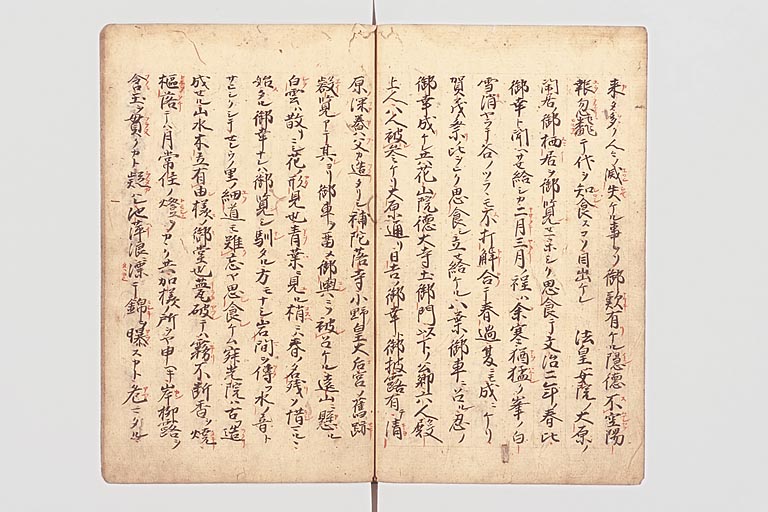 来タ多ノ人々ノ滅失ケル事ヲソ御歎有ケル隠徳不空陽
報忽飜テ代ヲ知食スコソ目出ケレ 法皇女院ノ大原ノ
閑居御栖居ヲ御覧セマホシク思食テ文治二年ノ春比
御幸ト聞ハサセ給シカ二月三月ノ程ハ余寒猶猛ク峯ノ白
雪消ヤラテ谷ノツラヽモ不打解合テ春過夏ニ成ニケリ
賀茂祭比ニソ思食シ立セ給ケル八葉御車ニ召ル忍ノ
御幸成ケレ共花山院徳大寺土御門以下公卿六人殿
上人八人被参ケリ大原通リ日吉ノ御幸ト御披露有テ清
原深養父カ造タリシ補陀落寺小野皇大后宮ノ舊跡
叡覧アテ其ヨリ御車ヲ留メ御輿ニソ被召ケル遠山ニ懸ル
白雲ハ散リニシ花ノ形見也青葉ニ見ル梢ニハ春ノ名残ソ惜マルヽ
始タル御幸ナレハ御覧シ馴タル方モナシ岩間ヲ傳フ水ノ音ト
里ノ細道モ難忘ヤ思食ケム寂光院ハ古造
成セル山水木立有由様ノ御堂也甍破テハ霧不断香ヲ焼
樞落テハ月常住ノ燈ヲカヽク共加様ノ所ヲヤ申ヘキ岸柳露ヲ
含玉ヲ貫ヌクカト疑ハレ池萍浪ニ漂テ錦ヲ曝スカト危マタル